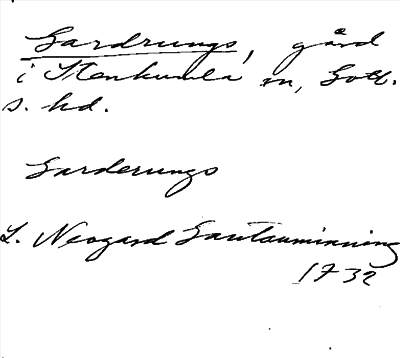 Gardrungs, gård
i Stenkumla sn, Gotl.
s. hd.
Garderungs
L. Neogard Gautauminning
1732